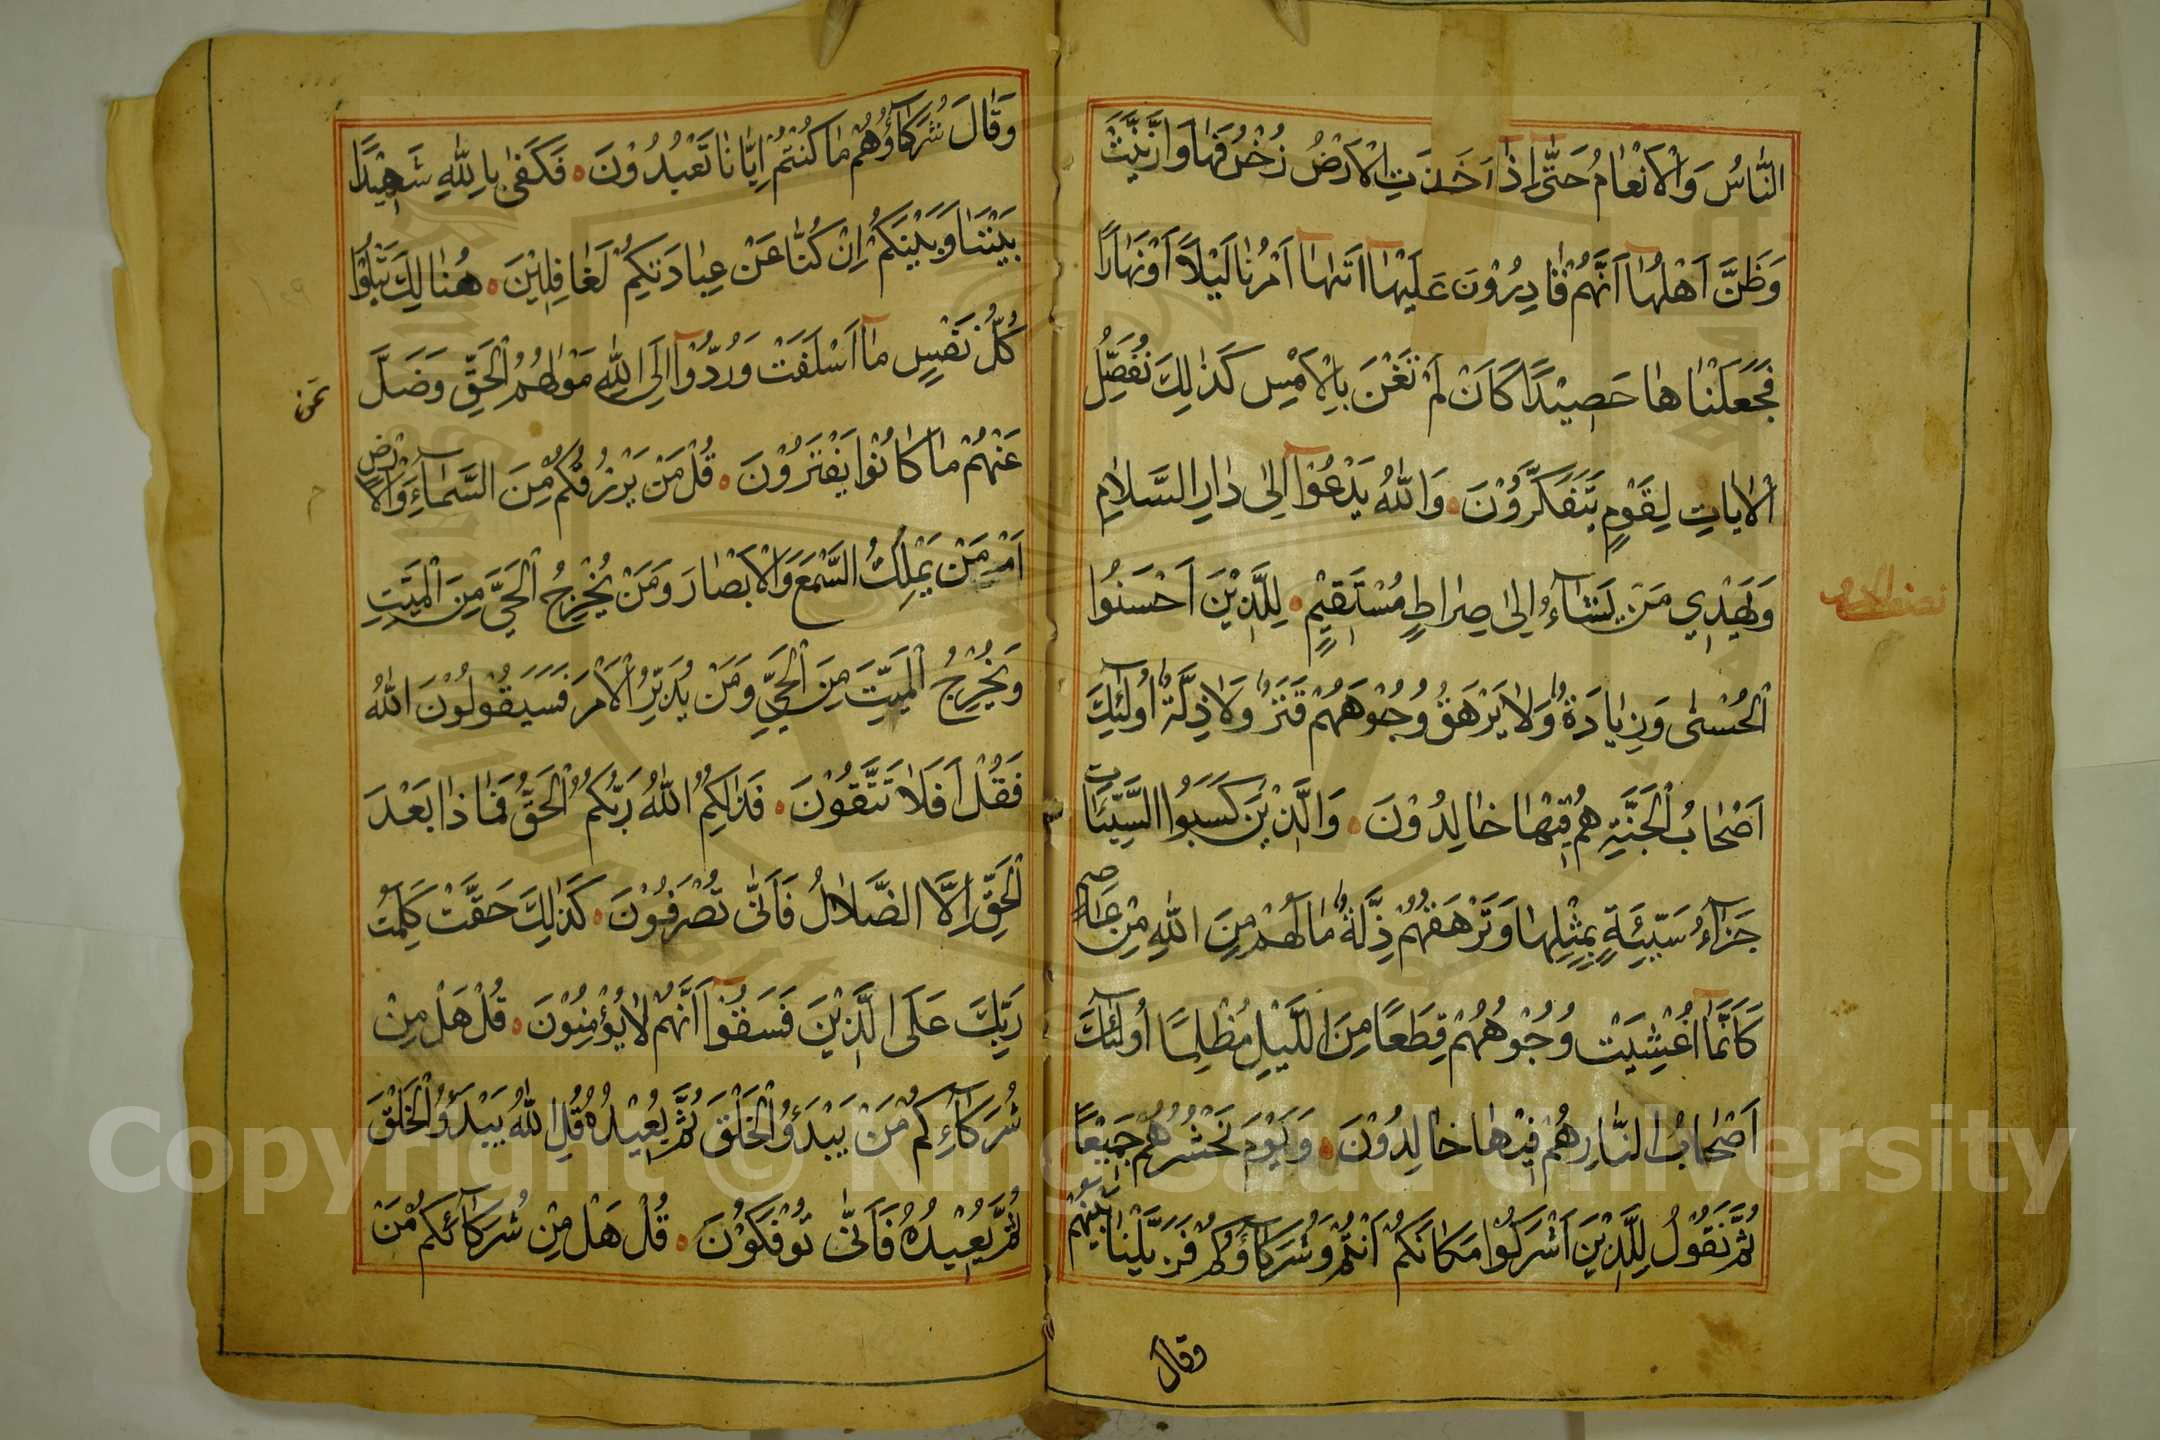 النَّاسُ وَالْاَنْعٰامُ حَتّٰى اِذٰا اَخَذَتِ الْاَرْضُ زُخْرُفَهٰا وَازَّيَّنَتْ
وَظَنَّ اَهْلُهٰا اَنَّهُمْ قٰادِرُوْنَ عَلَيْهٰا اَتٰىهٰا اَمْرُنٰا لَيْلًا اَوْ نَهٰارًا
فَجَعَلْنٰاهٰا حَصِيْدًا كَاَنْ لَمْ تَغْنَ بِالْاَمْسِ كَذٰلِكَ نُفَصِّلُ
الْاٰيٰاتِ لِقَوْمٍ يَتَفَكَّرُوْنَ وَاللّٰهُ يَدْعُوْا اِلٰى دٰارِ السَّلاٰمِ
وَيَهْدِي مَنْ يَشٰآءُ اِلٰى صِرٰاطٍ مُسْتَقِيْمٍ لِلَّذِيْنَ اَحْسَنُوا
الْحُسْنٰى وَزِيٰادَةٌ وَلٰا يَرْهَقُ وُجُوْهَهُمْ قَتَرٌ وَلٰا ذِلَّةٌ اُولٰٓئِكَ
اَصْحٰابُ الْجَنَّةِ هُمْ فِيْهٰا خٰالِدُوْنَ وَالَّذِيْنَ كَسَبُوا السَّيِّئٰاتِ
جَزٰآءُ سَيِّئَةٍ بِمِثْلِهٰا وَتَرْهَقُهُمْ ذِلَّةٌ مٰا لَهُمْ مِنَ اللّٰهِ مِنْ عٰاصِمٍ
كَاَنَّمٰا اُغْشِيَتْ وُجُوْهُهُمْ قِطَعًا مِنَ اللَّيْلِ مُظْلِمًا اُولٰٓئِكَ
اَصْحٰابُ النّٰارِ هُمْ فِيْهٰا خٰالِدُوْنَ وَيَوْمَ نَحْشُرُهُمْ جَمِيْعًا
ثُمَّ نَقُوْلُ لِلَّذِيْنَ اَشْرَكُوْا مَكٰانَكُمْ اَنْتُمْ وَشُرَكٰآؤُكُمْ فَزَيَّلْنٰا بَيْنَهُمْ
وقال
وَقٰالَ شُرَكٰآؤُهُمْ مٰا كُنْتُمْ اِيّٰانٰا تَعْبُدُوْنَ فَكَفٰى بِاللّٰهِ شَهِيْدًا
بَيْنَنٰا وَبَيْنَكُمْ اِنْ كُنّٰا عَنْ عِبٰادَتِكُمْ لَغٰافِلِيْنَ هُنٰالِكَ تَبْلُوْا
كُلُّ نَفْسٍ مٰا اَسْلَفَتْ وَرُدُّوْا اِلَى اللّٰهِ مَوْلٰىهُمُ الْحَقِّ وَضَلَّ
ثمن
عَنْهُمْ مٰا كٰانُوْا يَفْتَرُوْنَ قُلْ مَنْ يَرْزُقُكُمْ مِنَ السَّمٰآءِ وَالْاَرْضِ
اَمَّنْ يَمْلِكُ السَّمْعَ وَالْاَبْصٰارَ وَمَنْ يُخْرِجُ الْحَيَّ مِنَ الْمَيِّتِ
وَيُخْرِجُ الْمَيِّتَ مِنَ الْحَيِّ وَمَنْ يُدَبِّرُ الْاَمْرَ فَسَيَقُوْلُوْنَ اللّٰهُ
فَقُلْ اَفَلاٰ تَتَّقُوْنَ فَذٰلِكُمُ اللّٰهُ رَبُّكُمُ الْحَقُّ فَمٰاذٰا بَعْدَ
الْحَقِّ اِلَّا الضَّلاٰلُ فَاَنّٰى تُصْرَفُوْنَ كَذٰلِكَ حَقَّتْ كَلِمَتُ
رَبِّكَ عَلَى الَّذِيْنَ فَسَقُوْا اَنَّهُمْ لٰا يُؤْمِنُوْنَ قُلْ هَلْ مِنْ
شُرَكٰآئِكُمْ مَنْ يَبْدَؤُ الْخَلْقَ ثُمَّ يُعِيْدُهُ قُلِ اللّٰهُ يَبْدَؤُ الْخَلْقَ
ثُمَّ يُعِيْدُهُ فَاَنّٰى تُؤْفَكُوْنَ قُلْ هَلْ مِنْ شُرَكٰآئِكُمْ مَنْ
Copyright © King Saud University